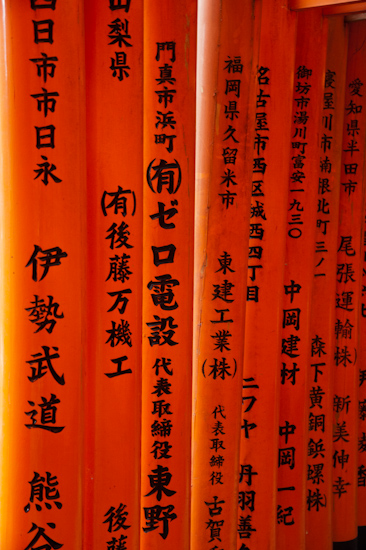 四日市市日永 伊勢武道 熊谷
山梨県 (有)後藤万機工 後藤
門真市浜町 (有)ゼロ電設 代表取締役 東野
福岡県久留米市 東建工業(株) 代表取締役 古賀
名古屋市西区城西四丁目 ニワヤ 丹羽善
御坊市湯川町富安一九三〇 中岡建材 中岡一紀
寝屋川市楠根北町三ノ一 森下黄銅鋲螺(株)
愛知県半田市 尾張運輸(株) 新美伸幸